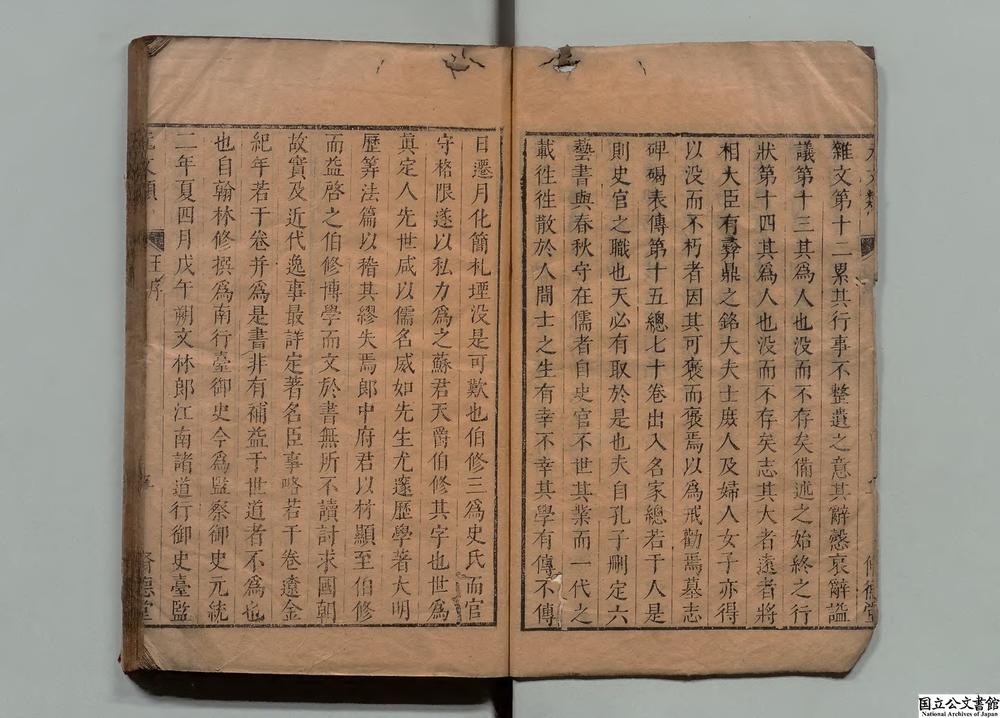 元文類 脩德堂
雜文第十二累其行事不整遺之意其辭慤哀辭謚
議第十三其爲人也没而不存矣備述之始終之行
狀第十四其爲人也没而不存矣志其大者遠者將
相大臣有彞鼎之銘大夫士庶人及婦人女子亦得
以没而不朽者因其可褒而褒焉以爲戒勸焉墓志
碑碣表傳第十五總七十卷出入名家總若干人是
則史官之職也天必有取於是也夫自孔子刪定六
藝書與春秋守在儒者自史官不世其業而一代之
載徃徃散於人間士之生有幸不幸其學有傳不傳
日遷月化簡札堙没是可歎也伯修三爲史氏而官
守格限遂以私力爲之蘇君天爵伯修其字也世爲
眞定人先世咸以儒名威如先生尤邃歷學著大明
歷筭法篇以稽其繆失焉郎中府君以材顯至伯修
而益啓之伯修博學而文於書無所不讀討求國朝
故實及近代逸事最詳定著名臣事略若干卷遼金
紀年若干卷并爲是書非有補益于世道者不爲也
也自翰林修撰爲南行臺御史今爲監察御史元統
二年夏四月戊午朔文林郎江南諸道行御史臺監
元文類 王序 脩德堂
国立公文書館
National Archives of Japan